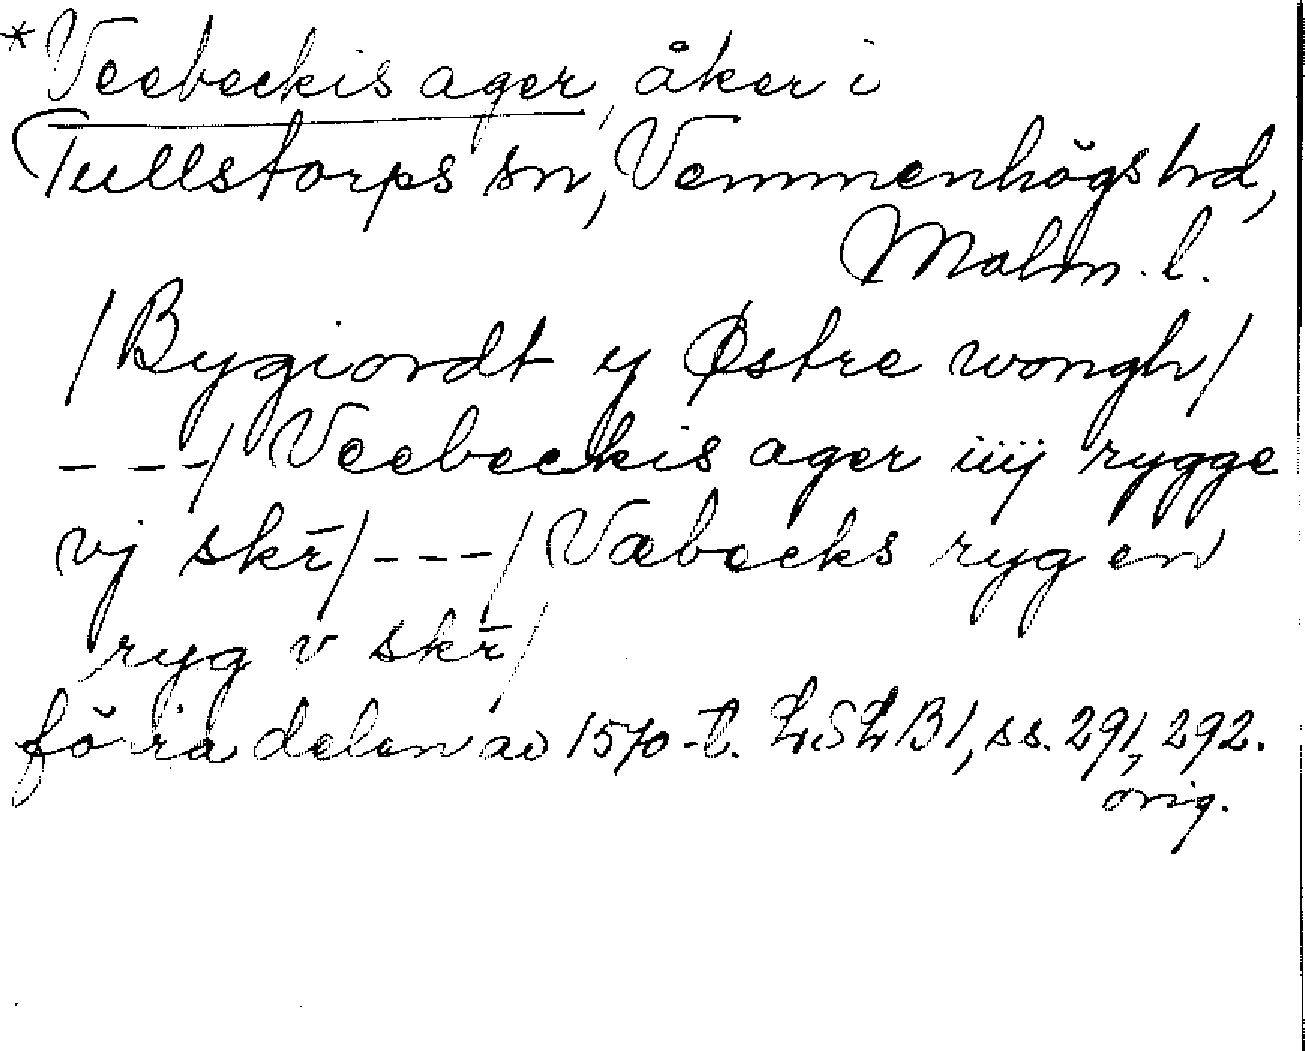 *Veebeckis ager, åker i
Tullstorps sn, Vemmenhögs hd,
Malm. l.
/Bygiordt y Østre wongh/
- - -/Veebeckis ager iiij rygge
vj skr̄/- - -/Væbecks ryg en
ryg v skr̄/
förra delen av 1570-t. LSLB1, ss. 291, 292.
orig.